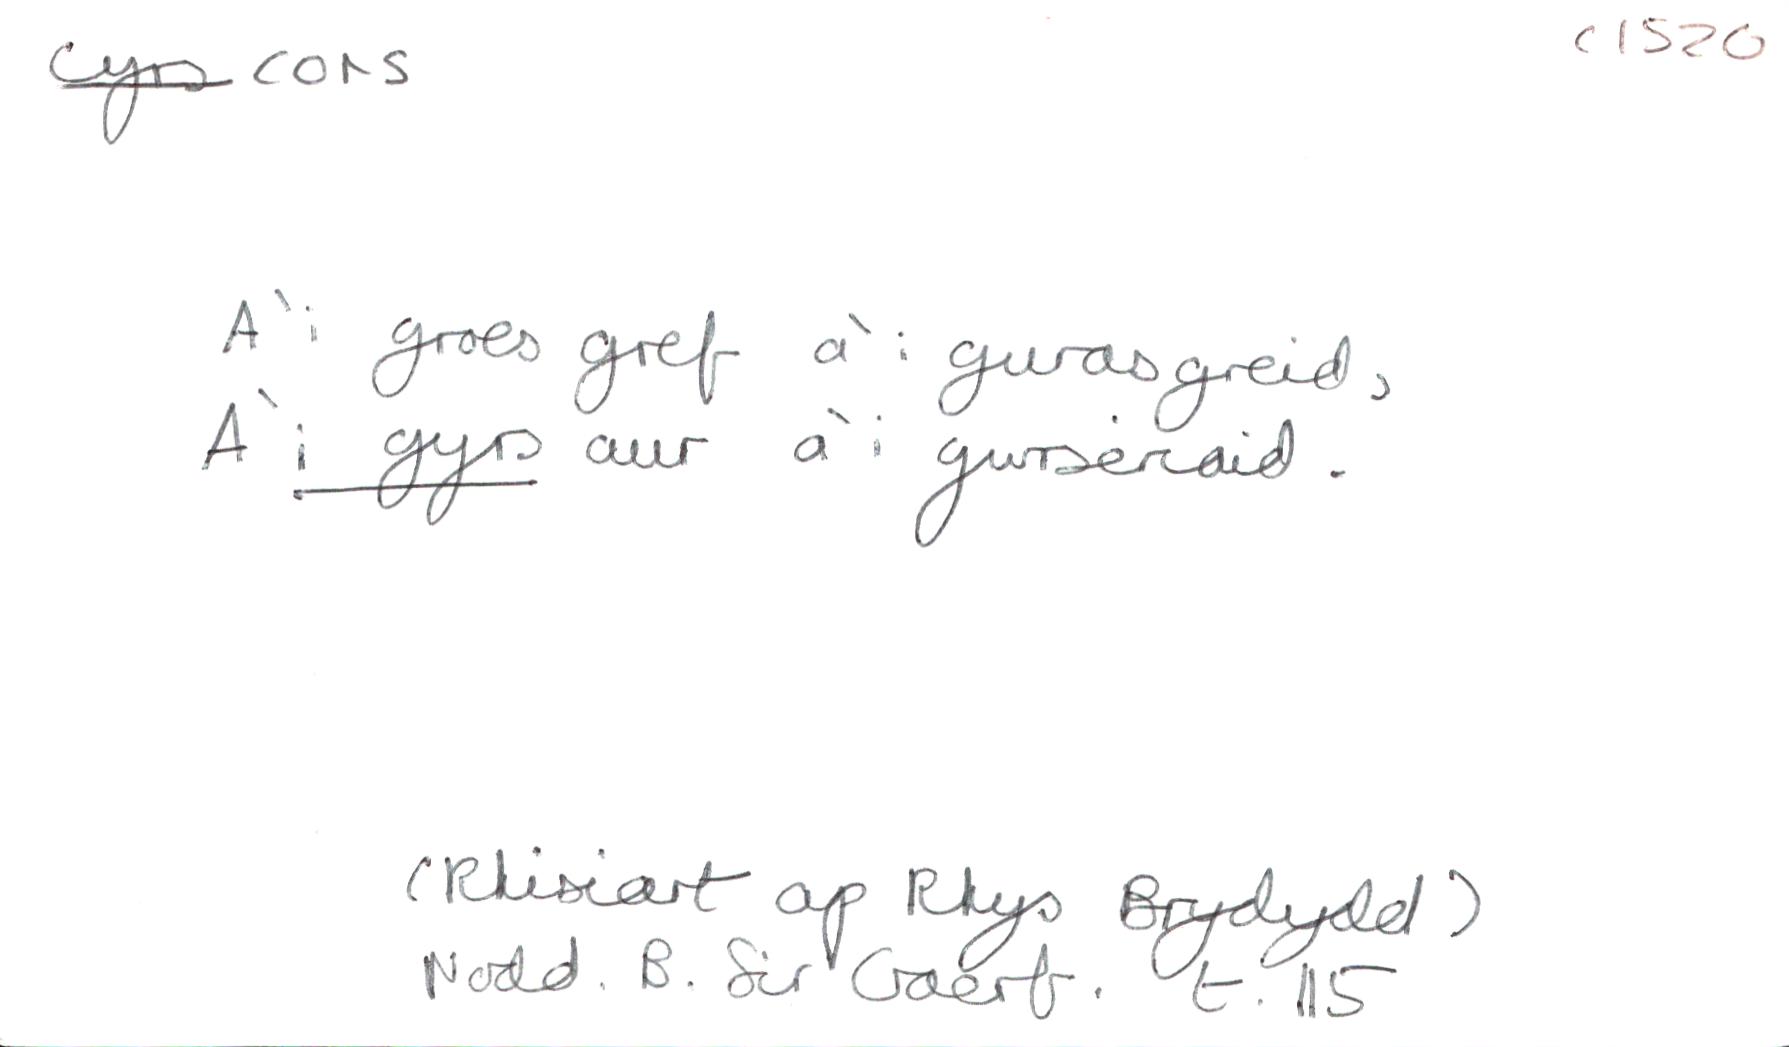 Cyrs CORS c1520
A'i groes gref a'i gwasgreid,
A'i gyrs aur a'i gwrseraid.
(Rhisiart ap Rhys Brydydd)
Nodd. B. Sir Gaerf. t. 115